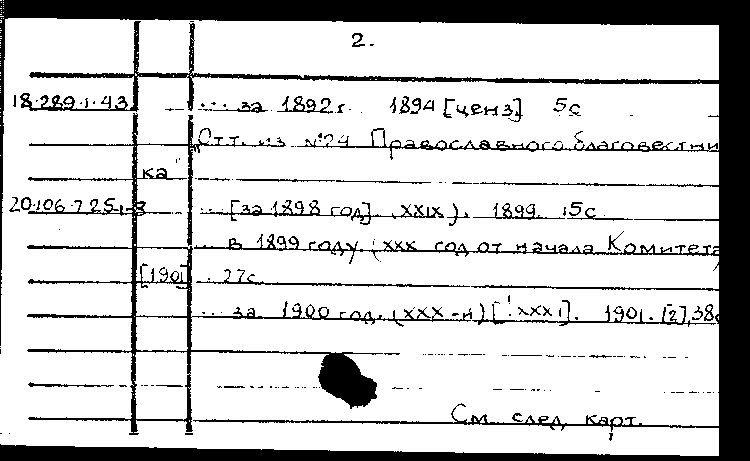 2.
18.289.1.43 ... за 1892 г. 1894 [ценз] 5с
„Отт. из №24 Православного благовестни
ка"
20.106.7.25 ... [за 1898 год]. (XXIX). 1899. 15с
... в 1899 году. (XXX год от начала Комитета)
[190] . 27с.
... за 1900 год. (XXX-й) [! XXXI]. 1901. [2], 38с
См. след. карт.